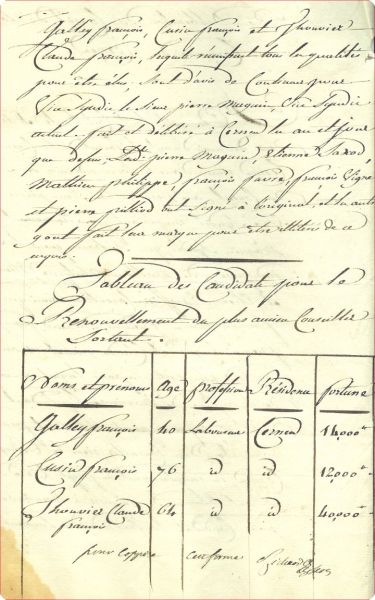 Galley françois, Cusin françois et Thouvier
Claude françois, lesquels réunissent tous les qualités
pour être élus, sont d'avis de Continuer pour
Vice Syndic le Sieur pierre Maguin, Vice Syndic
actuel. fait et délibéré à Cornend les an et jour
que dessus Led. pierre Maguin, Etienne
Mathieu philippe, françois favre, francois
et pierre ont Signé à l'original, et les autres
y ont fait leur marque pour être illitérés de ce
requis.
Tableau des Candidats pour le
Renouvellement du plus ancien Conseiller
Sortant.
Noms et prénoms age profession Résidence fortune
Galley françois 40 Laboureur Cornend 14,000
Cusin françois 76 id id 12,000
Thouvier Claude 64 id id 40,000
françois
pour Coppie conforme